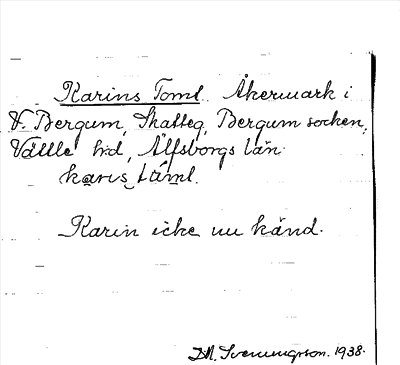 Karins Toml. Åkermark i
V. Bergum, Skatteg, Bergum socken,
Vättle hd, Älfsborgs län.
karıs
Karin icke nu känd.
D.M. Svenungsson. 1938.